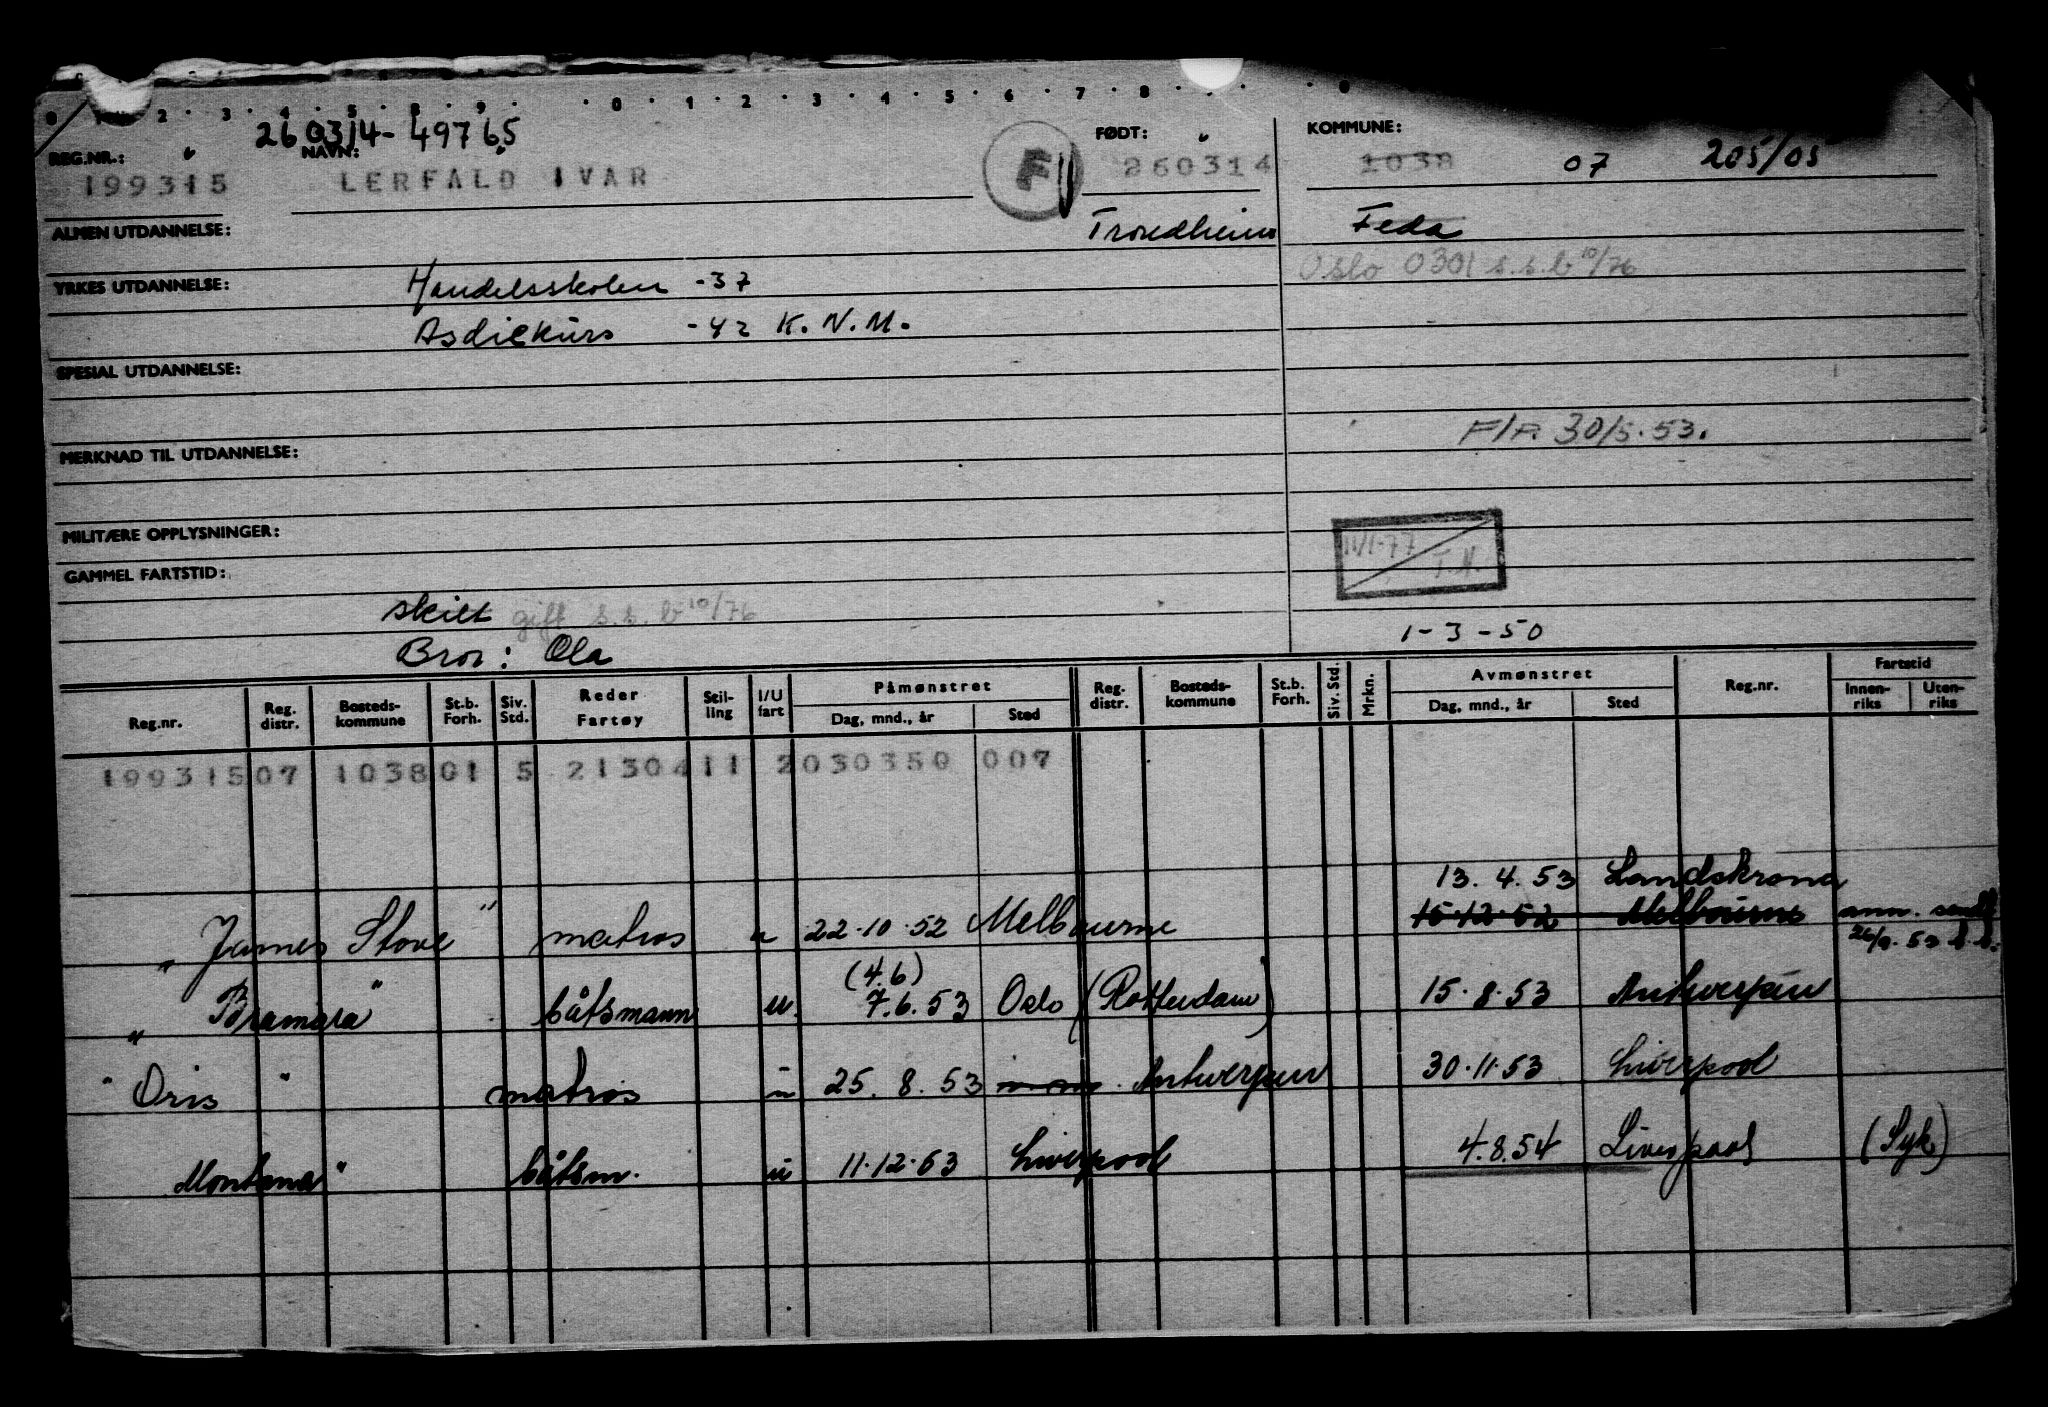 0 2 3 4 5 8 9 0 1 2 3 4 5 6 7 8
260314-49765
REG.NR.: NAVN: FØDT: KOMMUNE:
199315 LERFALD IVAR F 260314 1038 07 205/05
ALMEN UTDANNELSE: Trondheim Feda
Oslo 0301 s.s.b 10/76
YRKES UTDANNELSE: Handelsskolen -37
Asdickurs -42 K.N.M.
SPESIAL UTDANNELSE:
F/R 30/5.53.
MERKNAD TIL UTDANNELSE:
MILITÆRE OPPLYSNINGER:
11/1-77 T.N.
GAMMEL FARTSTID:
skilt gift s.s.b 10/76
1-3-50
Bror: Ola
Reg.nr. Reg. distr. Bosteds-kommune St.b. Forh. Siv. Std. Reder Fartøy Stil-ling I/U fart Påmønstret Dag, mnd., år Sted Reg. distr. Bosteds-kommune St.b. Forh. Siv. Std. Mrkn. Avmønstret Dag, mnd., år Sted Reg.nr. Fartstid Innen-riks Uten-riks
199315 07 1038 01 5 21304 11 2 030350 007
13.4.53 Landskrona
" James Stove " matros u 22.10.52 Melbourne 15.12.52 Melbourne ann. sendt
26/9.53
(4.6)
" Bramora " båtsmann u. 7.6.53 Oslo (Rotterdam) 15.8.53 Antwerpen
" Oris " matros u 25.8.53 Antwerpen 30.11.53 Liverpool
Montana " båtsm. u 11.12.53 Liverpool 4.8.54 Liverpool (Syk)